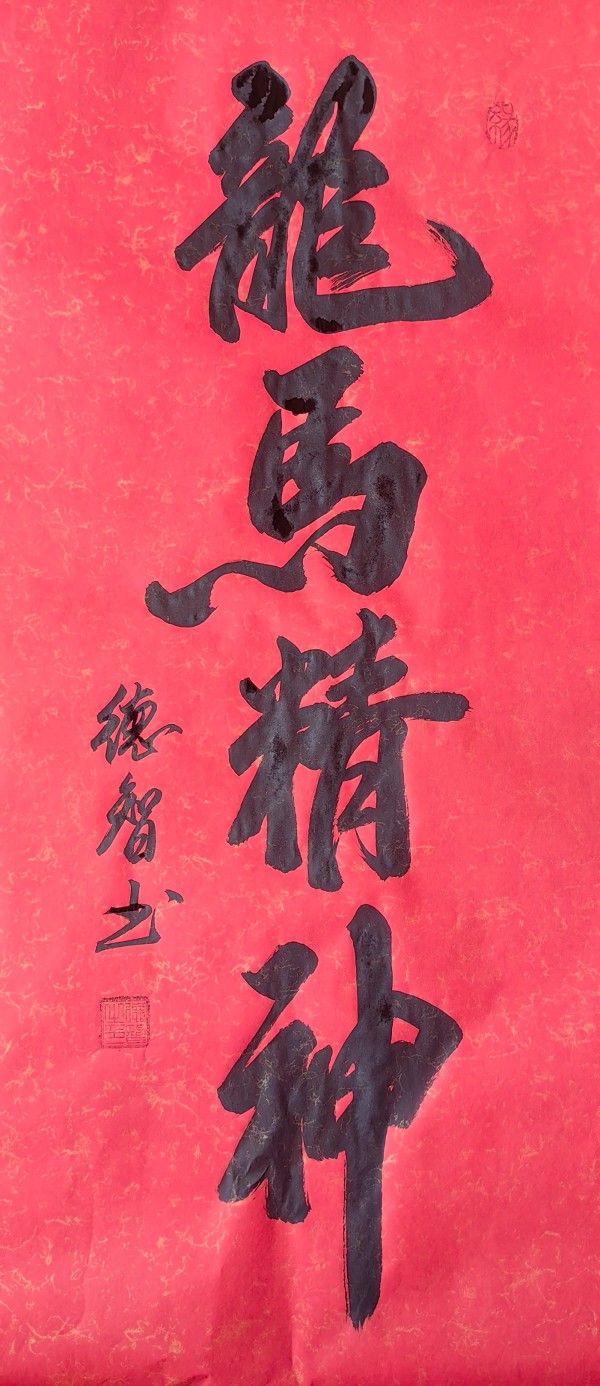 龍馬精神
德智书